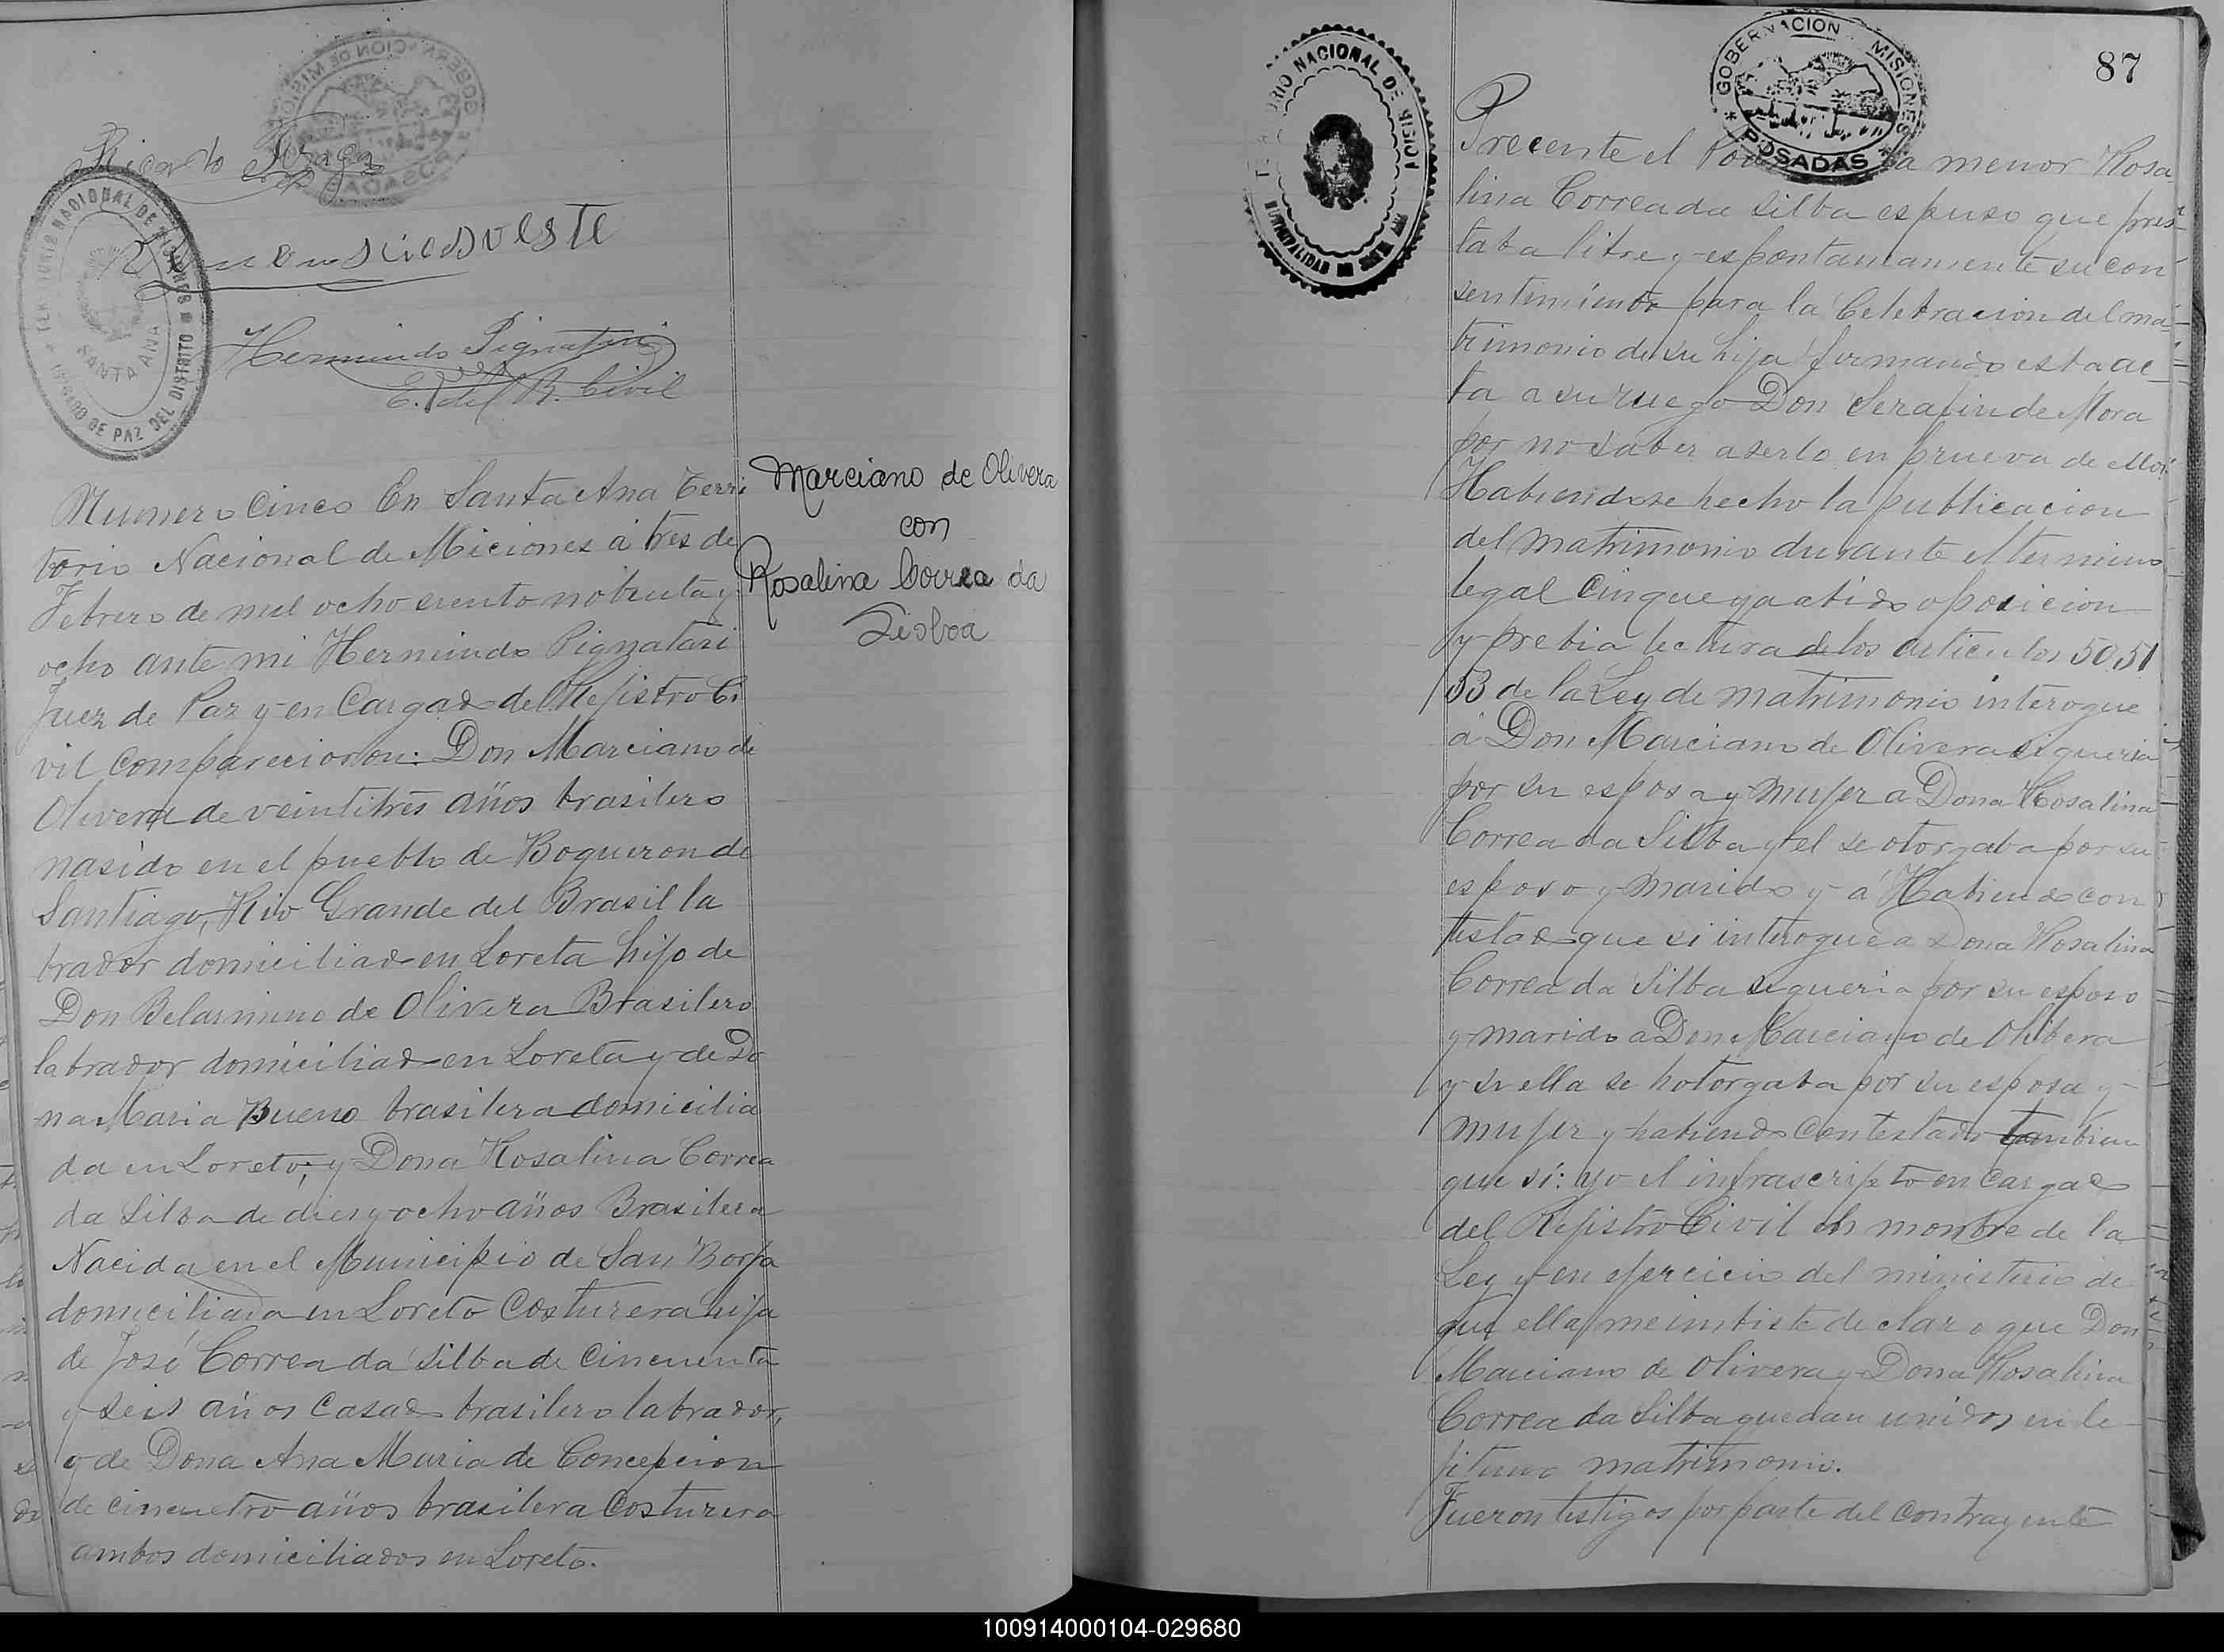 GOBERNACION DE MISIONES
POSADAS
Ricardo Fraga
TERRITORIO NACIONAL DE MISIONES
SANTA ANA
JUZGADO DE PAZ DEL DISTRITO
Hermindo Pignatari
E. del R. Civil
Marciano de Olivera
con
Rosalina Correa da
Lisboa
Numero Cinco En Santa Ana Terri
torio Nacional de Miciones á tres de
Febrero de mil ocho siento nobenta y
ocho ante mi Hermindo Pignatari
Juez de Paz y en Cargado del Rejistro Ci
vil Comparecioron: Don Marciano de
Olivera de veintitrés años brasilero
nasido en el pueblo de Boqueron de
Santiago, Rio Grande del Brasil la
brador domiciliado en Loreta hijo de
Don Belarmino de Olivera Brasilero
labrador domiciliado en Loreta y de Do
na Maria Bueno brasilera domicilia
da en Loreto; y Dona Rosalina Correa
da Silba de diez y ocho años Brasilera
Nacida en el Municipio de San Borja
domiciliada en Loreto Costurera hija
de José Correa da Silba de Cincuenta
y seis años Casado brasilero labrador,
y de Dona Ana Maria de Concepcion
de cincuetro años brasilera Costurera
ambos domiciliados en Loreto.
TERRITORIO NACIONAL DE MISIONES
MUNICIPALIDAD DE SANTA ANA
GOBERNACION MISIONES
POSADAS
87
Precente el menor Rosa
lina Correa da Silba espuso que pres
taba libre y espontaneamente su con
sentimiento para la Celebracion del ma
trimonio de su hija firmando esta ac
ta a su ruego Don Serafin de Mora
por no saber aserlo en prueva de ello.
Habiendose hecho la publicacion
del matrimonio durante el termino
legal Cinque ya abido oposicion
y prebia lectura de los articulos 50, 51
53 de la Ley de matrimonio interogue
á Don Marciano de Olivera si queria
por su esposa y mujer a Dona Rosalina
Correa da Silba y el se otorgaba por su
esposo y marido y á Habiendo con
testado que si interogue a Dona Rosalina
Correa da Silba si queria por su esposo
y marido a Don Marciano de Olibera
y si ella se hotorgaba por su esposa y
mujer y habiendo Contestado tambien
que sí: yo el infrascripto en Cargado
del Rejistro Civil en nombre de la
Ley y en ejercicio del ministerio de
que ella me imbiste declaro que Don
Marciano de Olivera y Dona Rosalina
Correa da Silba quedan unidos en le
jitimo matrimonio.
Fueron testigos por parte del contrayente
100914000104-029680